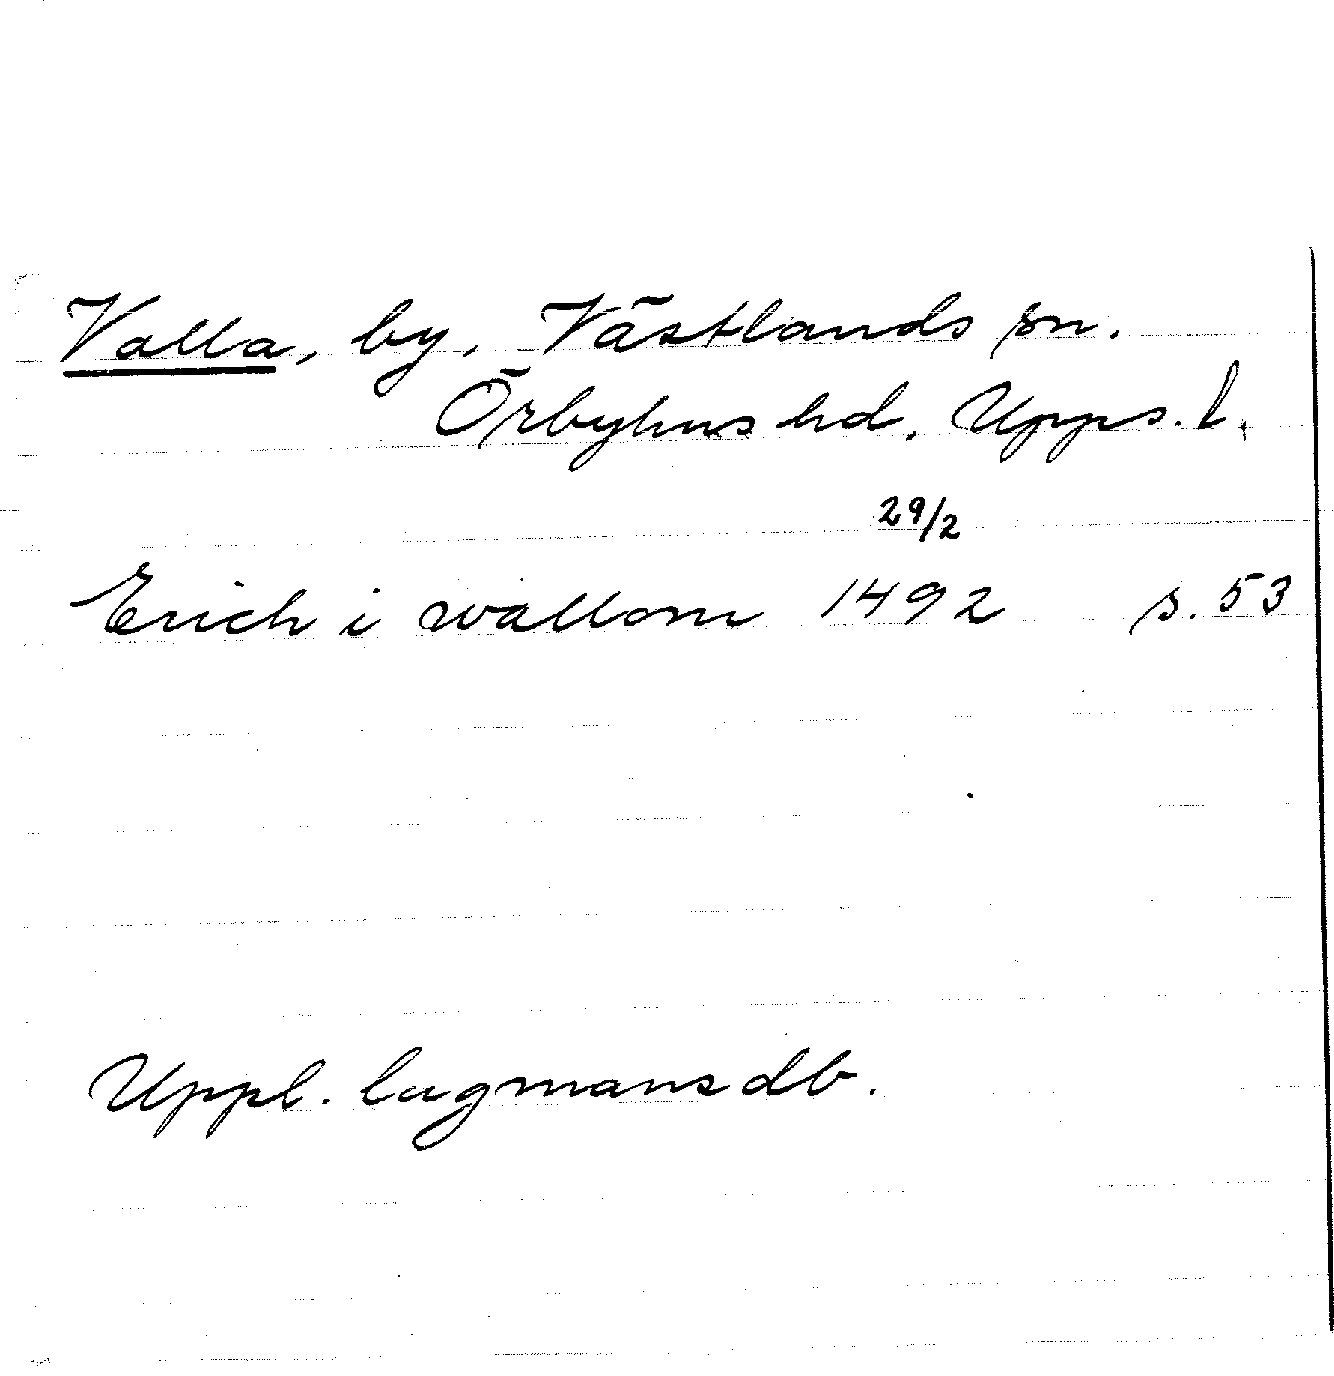 Valla, by, Västlands sn.
Örbyhus hd. Upps. l.
29/2
Erich i wallom 1492 s. 53
Uppl. lagmans db.